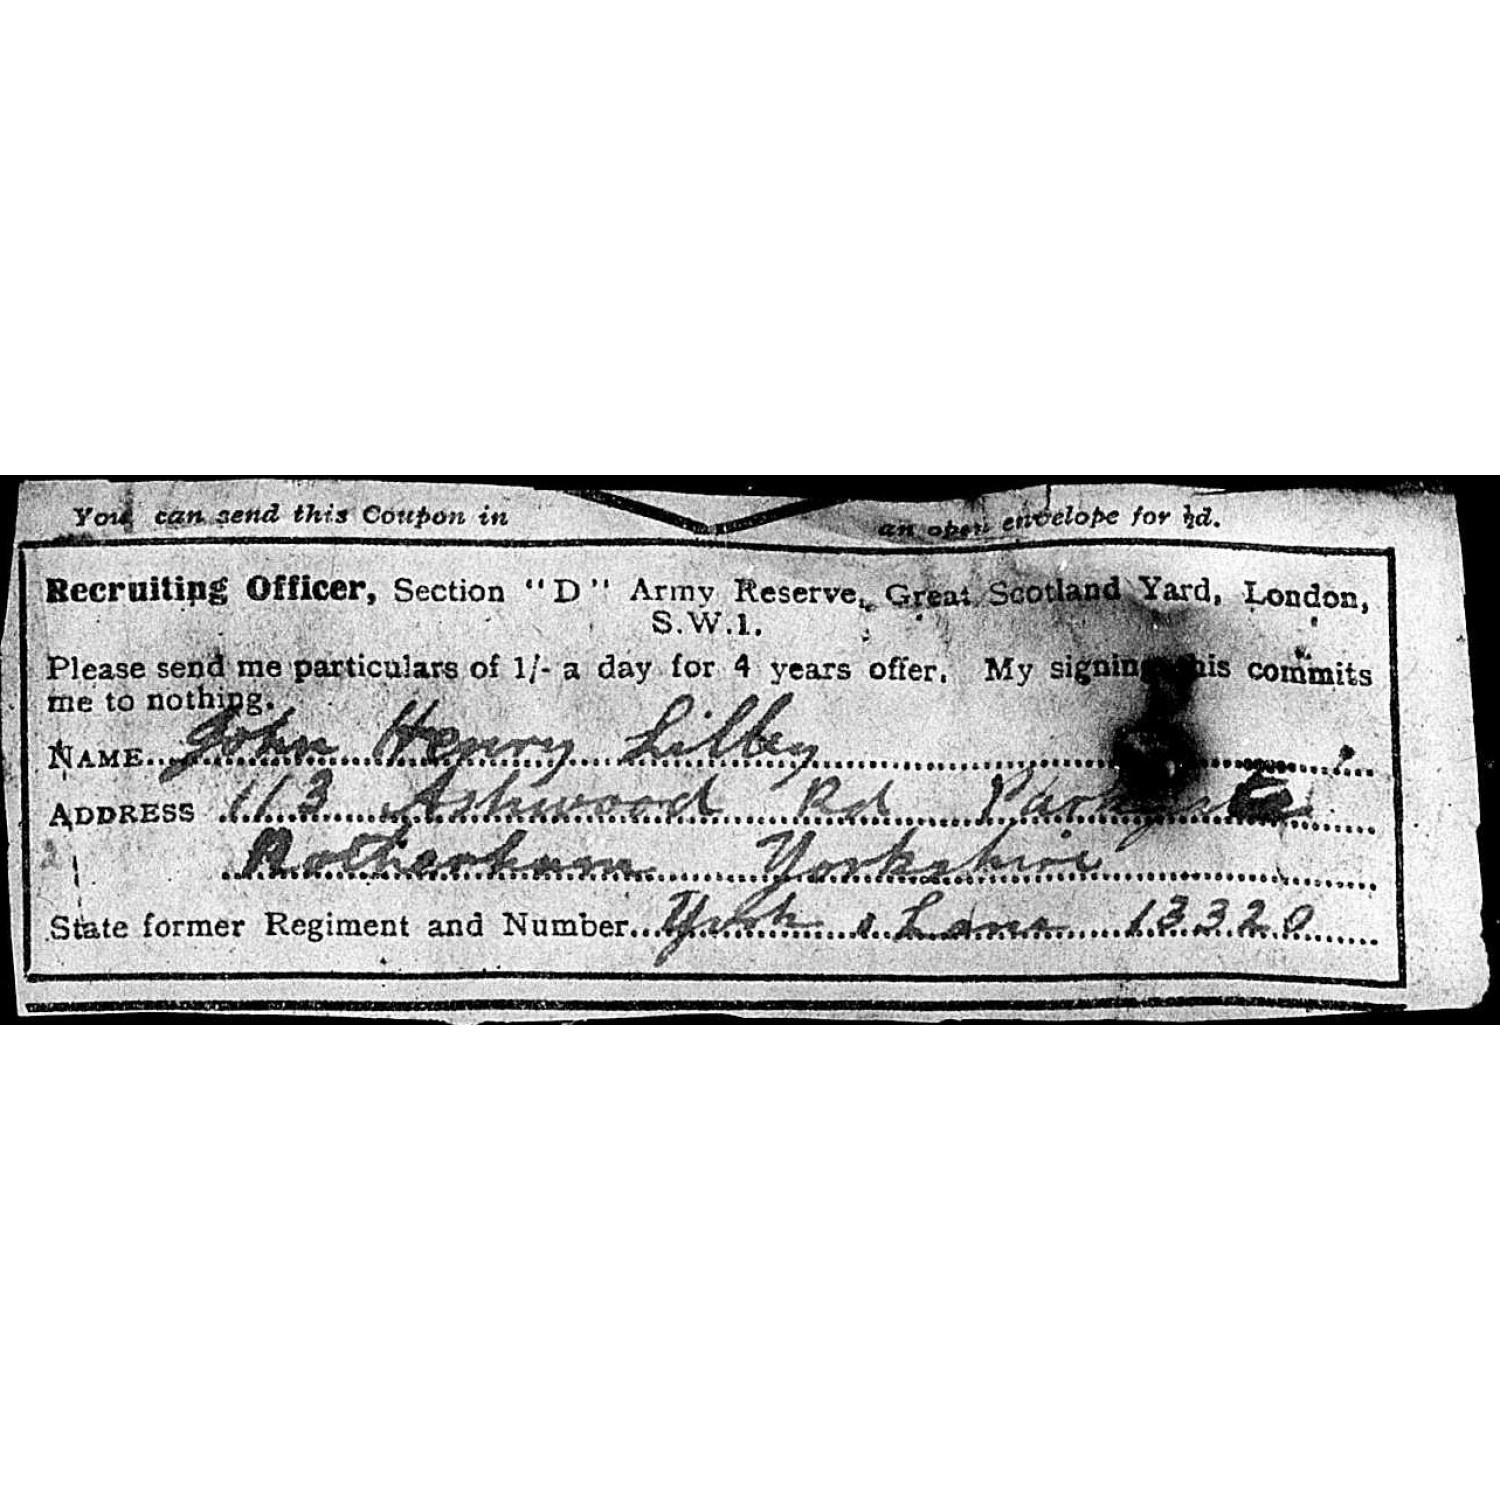 You can send this Coupon in an open envelope for ½d.
Recruiting Officer, Section "D" Army Reserve, Great Scotland Yard, London,
S.W.1.
Please send me particulars of 1/- a day for 4 years offer. My signing this commits
me to nothing.
NAME John Henry Lilley
ADDRESS 113 Ashwood Rd Parkgate
Rotherham Yorkshire
State former Regiment and Number York & Lancs 13320